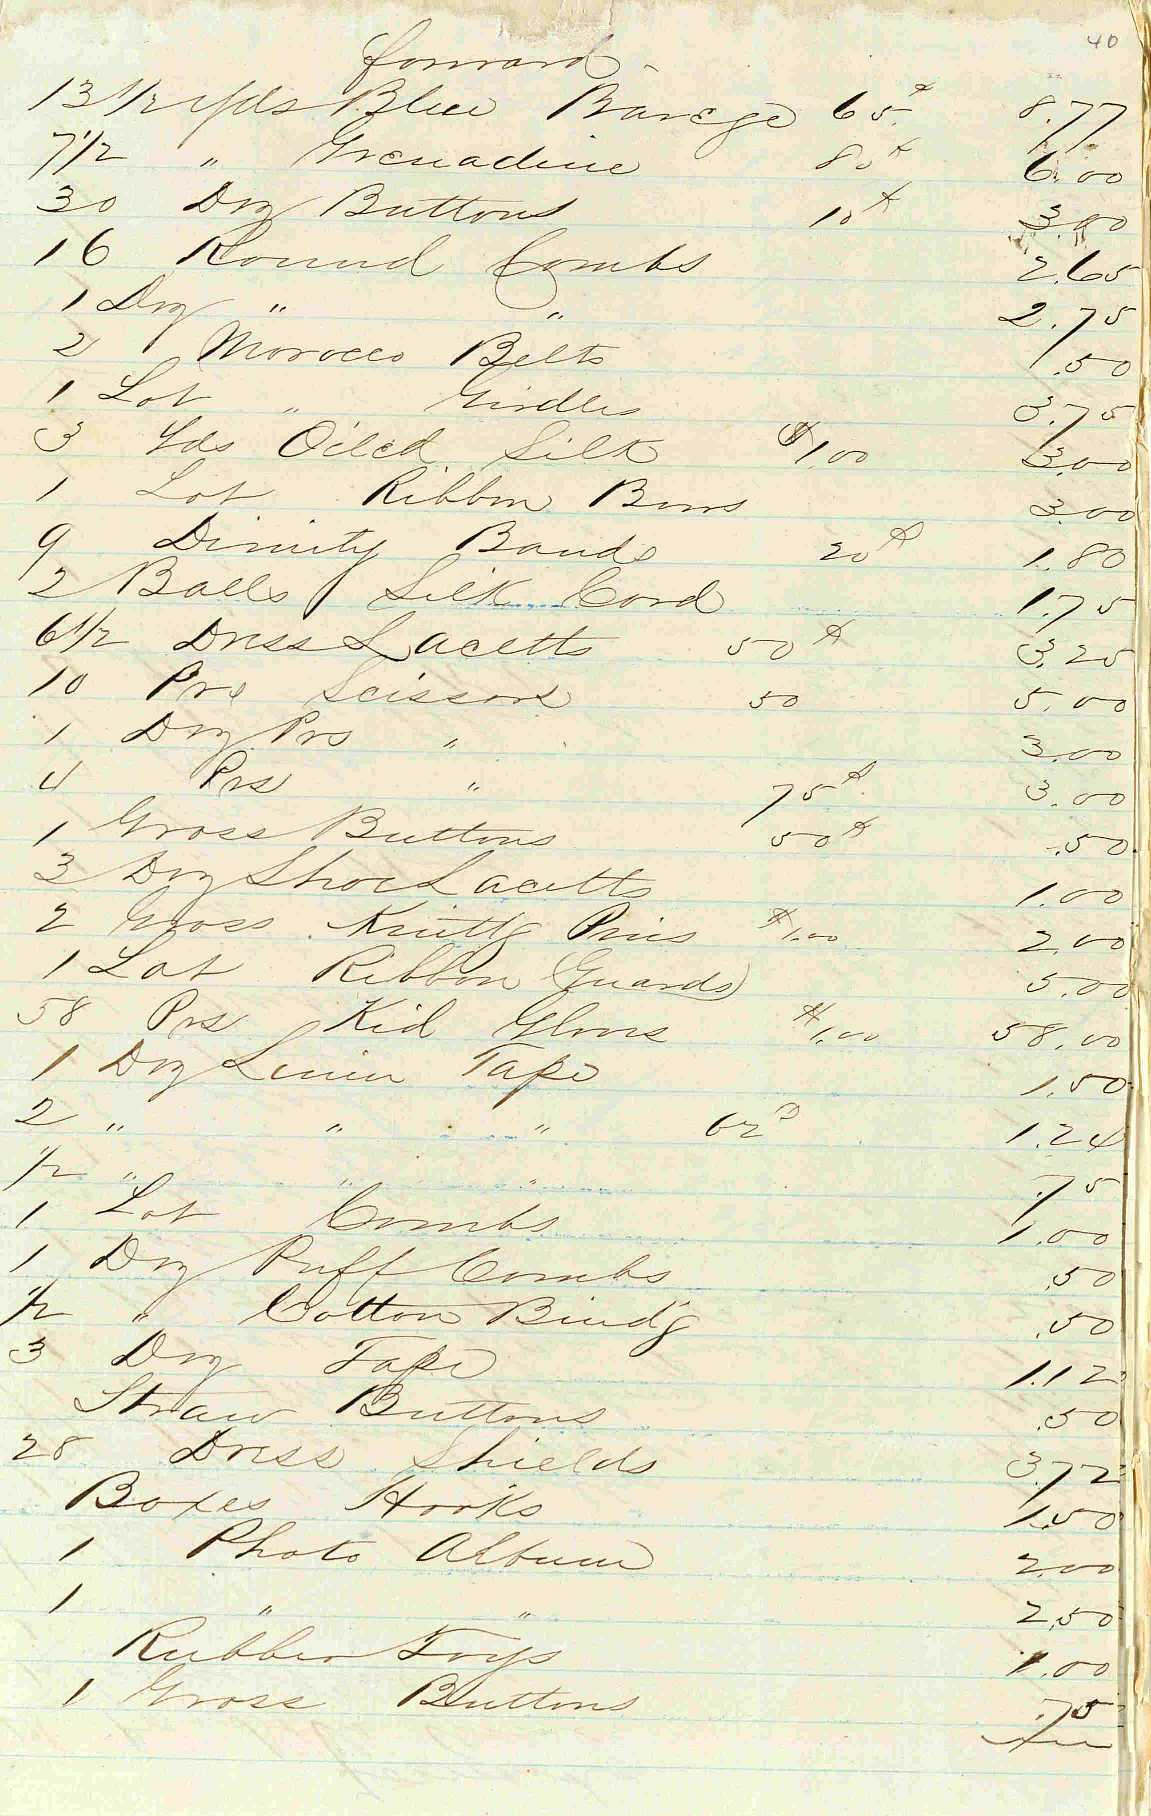 40
forward -
13 1/2 yds Blue Barege 65¢ 8.77
7 1/2 " Grenadine 80¢ 6.00
30 Doz Buttons 10¢ 3.00
16 Round Combs 2.65
1 Doz " " 2.75
2 Morocco Belts 1.50
1 Lot " Girdles 3.75
3 Yds Oiled Silk $1.00 3.00
1 Lot Ribbon Bows 3.00
9 Dimity Bands 20¢ 1.80
2 Balls Silk Cord 1.75
6 1/2 Dress Lacetts 50¢ 3.25
10 Prs Scissors 50 5.00
1 Doz Prs " 3.00
4 Prs " 75¢ 3.00
1 Gross Buttons 50¢ .50
3 Doz Shoe Lacetts 1.00
2 Gross Knittg Pins $1.00 2.00
1 Lot Ribbon (Guards) 5.00
58 Prs Kid Gloves $1.00 58.00
1 Doz Linin Tape 1.50
2 " " " 62¢ 1.24
1/2 " " " .75
1 Lot Combs 1.00
1 Doz Puff Combs .50
1/2 " Cotton Bindg .50
3 Doz Tape 1.12
Straw Buttons .50
28 Dress Shields 3.72
Boxes Hooks 1.50
1 Photo Album 2.00
1 " " 2.50
Rubber Toys 1.00
1 Gross Buttons .75